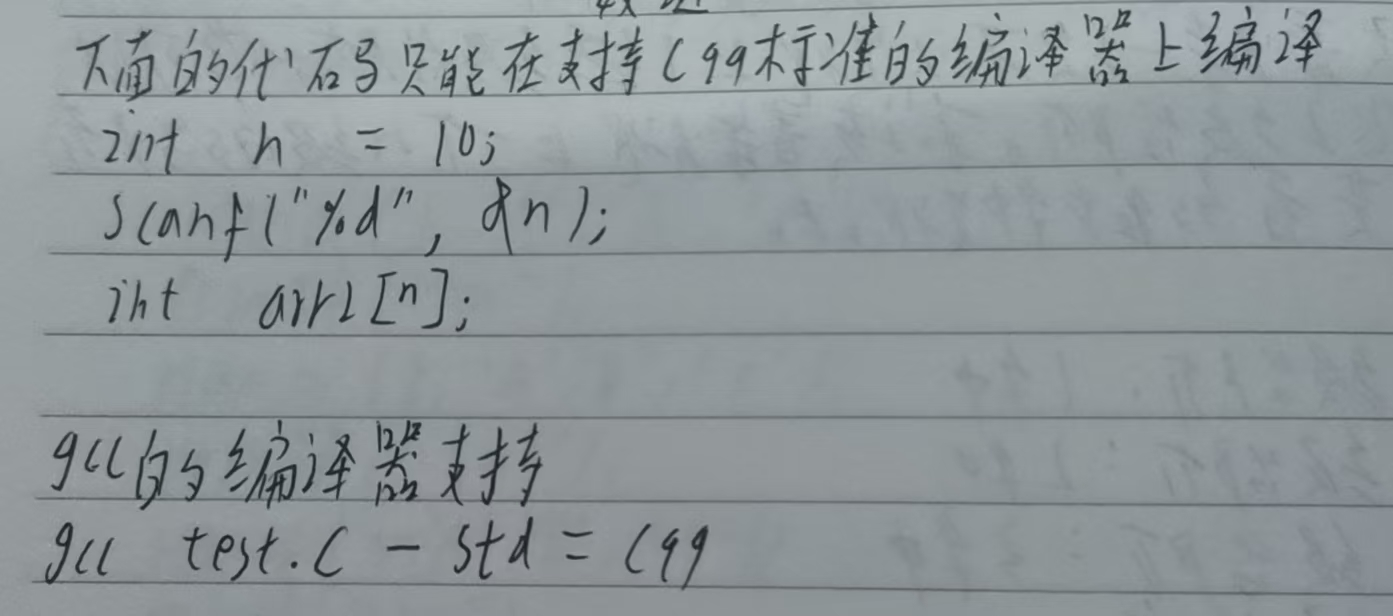 下面的代码只能在支持C99标准的编译器上编译
int n = 10;
scanf("%d", &n);
int arr2[n];
gcc的编译器支持
gcc test.c - std = c99